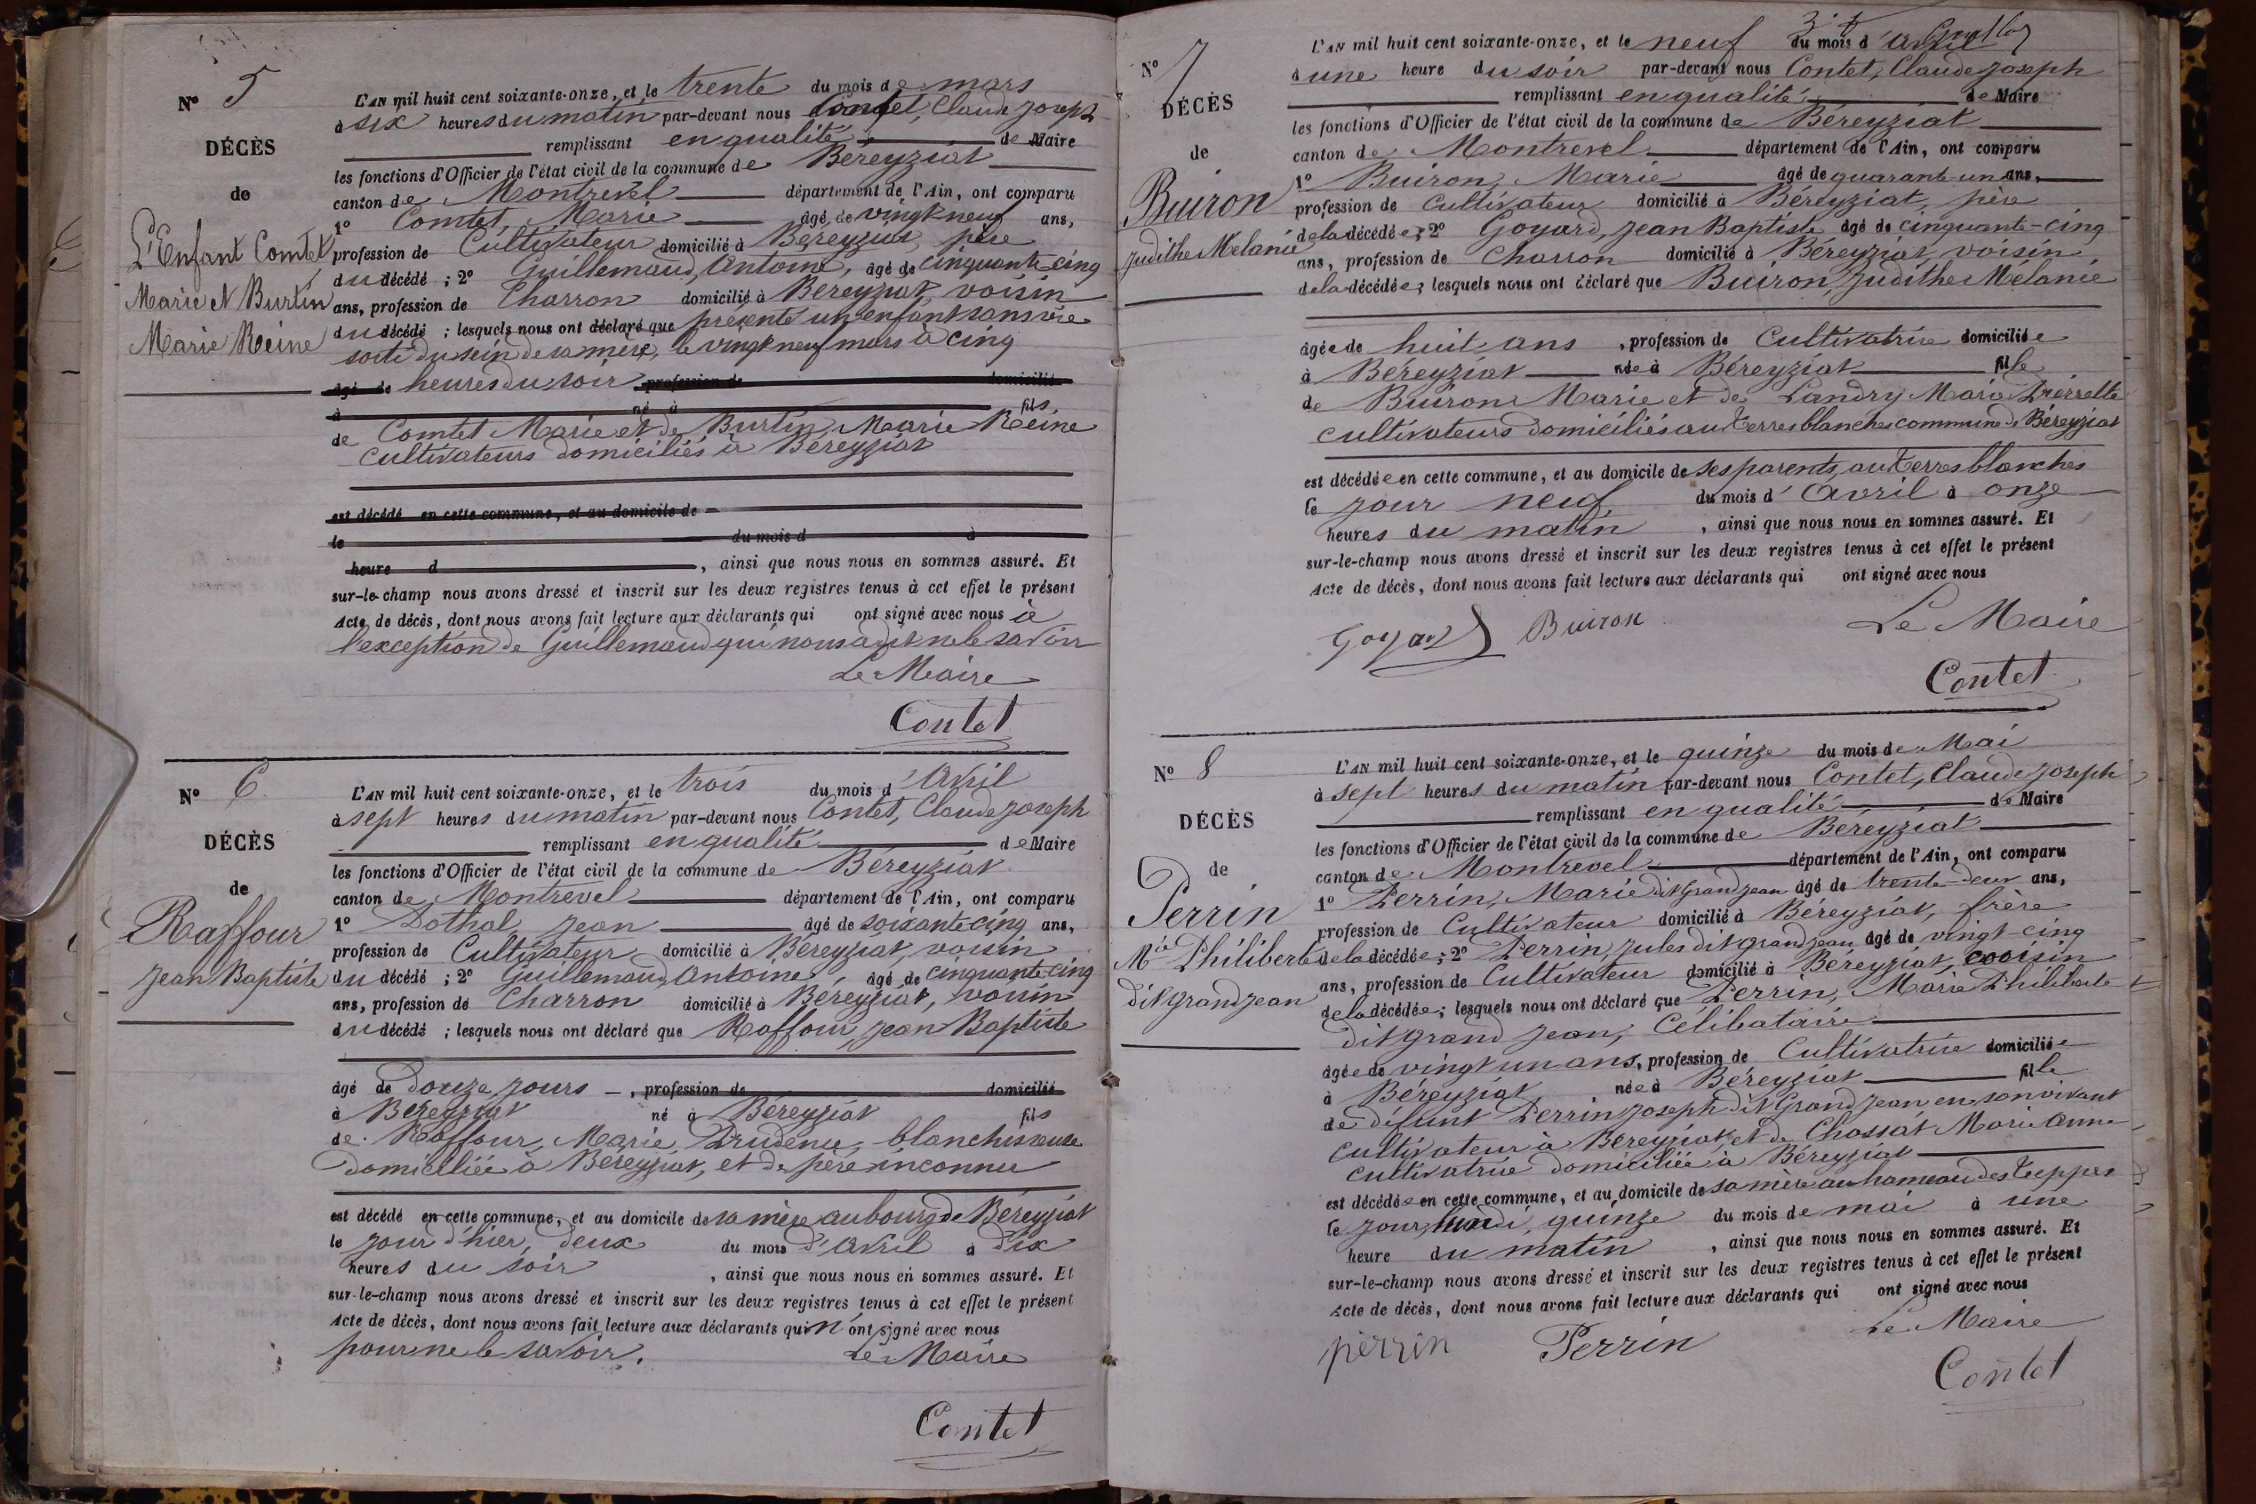 Nº 5
DÉCÈS
de
L'Enfant Comtet
Marie et Burtin
Marie Reine
L'AN mil huit cent soixante-onze, et le trente du mois de mars
à six heures du matin par-devant nous Contet, Claude Joseph
remplissant en qualité de Maire
les fonctions d'Officier de l'état civil de la commune de Béreyziat
canton de Montrevel département de l'Ain, ont comparu
1º Comtet, Marie âgé de vingt neuf ans,
profession de Cultivateur domicilié à Béreyziat, père
du décédé ; 2º Guillemaud, Antoine, âgé de cinquante-cinq
ans, profession de Charron domicilié à Béreyziat, voisin
du décédé ; lesquels nous ont déclaré que présenté un enfant sans vie
sorti du sein de sa mère, le vingt neuf mars à cinq
âgé de heures du soir profession de domicilié
à né à fils
de Comtet Marie et de Burtin, Marie Reine
cultivateurs domiciliés à Béreyziat
est décédé en cette commune, et au domicile de
le du mois d à
heure d , ainsi que nous nous en sommes assuré. Et
sur-le-champ nous avons dressé et inscrit sur les deux registres tenus à cet effet le présent
Acte de décès, dont nous avons fait lecture aux déclarants qui ont signé avec nous à
l'exception de Guillemaud qui nous a dit ne le savoir
Le Maire
Contet
Nº 6
DÉCÈS
de
Raffour
Jean Baptiste
L'AN mil huit cent soixante-onze, et le trois du mois d'Avril
à sept heures du matin par-devant nous Contet, Claude Joseph
remplissant en qualité de Maire
les fonctions d'Officier de l'état civil de la commune de Béreyziat
canton de Montrevel département de l'Ain, ont comparu
1º Dothal, Jean âgé de soixante cinq ans,
profession de Cultivateur domicilié à Béreyziat, voisin
du décédé ; 2º Guillemaud, Antoine, âgé de cinquante-cinq
ans, profession de Charron domicilié à Béreyziat, voisin
du décédé ; lesquels nous ont déclaré que Raffour, Jean Baptiste
âgé de douze jours , profession de domicilié
à Béreyziat né à Béreyziat fils
de Raffour, Marie Prudence, blanchisseuse
domiciliée à Béreyziat, et de père inconnu
est décédé en cette commune, et au domicile de sa mère au bourg de Béreyziat
le jour d'hier, deux du mois d'Avril à dix
heures du soir , ainsi que nous nous en sommes assuré. Et
sur-le-champ nous avons dressé et inscrit sur les deux registres tenus à cet effet le présent
Acte de décès, dont nous avons fait lecture aux déclarants qui n'ont signé avec nous
pour ne le savoir.
Le Maire
Contet
Nº 7
DÉCÈS
de
Buiron
Judithe Melanie
L'AN mil huit cent soixante-onze, et le neuf du mois d'Avril
à une heure du soir par-devant nous Contet, Claude Joseph
remplissant en qualité de Maire
les fonctions d'Officier de l'état civil de la commune de Béreyziat
canton de Montrevel département de l'Ain, ont comparu
1º Buiron, Marie âgé de quarante-un ans,
profession de Cultivateur domicilié à Béreyziat, père
de la décédée ; 2º Goyard, Jean Baptiste âgé de cinquante-cinq
ans, profession de Charron domicilié à Béreyziat, voisin
de la décédée ; lesquels nous ont déclaré que Buiron, Judithe Melanie
âgée de huit ans , profession de Cultivatrice domiciliée
à Béreyziat née à Béreyziat fille
de Buiron Marie et de Landry Marie Pierrette
cultivateurs domiciliés aux Terres blanches commune de Béreyziat
est décédée en cette commune, et au domicile de ses parents, aux Terres blanches
le jour neuf du mois d'Avril à onze
heures du matin , ainsi que nous nous en sommes assuré. Et
sur-le-champ nous avons dressé et inscrit sur les deux registres tenus à cet effet le présent
Acte de décès, dont nous avons fait lecture aux déclarants qui ont signé avec nous
Goyard Buiron
Le Maire
Contet
Nº 8
DÉCÈS
de
Perrin
Mie Philiberte
dit grand jean
L'AN mil huit cent soixante-onze, et le quinze du mois de Mai
à sept heures du matin par-devant nous Contet, Claude Joseph
remplissant en qualité de Maire
les fonctions d'Officier de l'état civil de la commune de Béreyziat
canton de Montrevel département de l'Ain, ont comparu
1º Perrin, Marie dit Grand jean âgé de trente-deux ans,
profession de Cultivateur domicilié à Béreyziat, frère
de la décédée ; 2º Perrin, Jules dit grand jean âgé de vingt-cinq
ans, profession de Cultivateur domicilié à Béreyziat, cooisin
de la décédée ; lesquels nous ont déclaré que Perrin, Marie Philiberte
dit grand Jean, Célibataire
âgée de vingt un ans, profession de Cultivatrice domiciliée
à Béreyziat née à Béreyziat fille
de défunt Perrin Joseph dit Grand Jean en son vivant
cultivateur à Béreyziat, et de Chossat Marie Anne
cultivatrice domiciliée à Béreyziat
est décédée en cette commune, et au domicile de sa mère au hameau des Teppes
le jour, lundi, quinze du mois de mai à une
heure du matin , ainsi que nous nous en sommes assuré. Et
sur-le-champ nous avons dressé et inscrit sur les deux registres tenus à cet effet le présent
Acte de décès, dont nous avons fait lecture aux déclarants qui ont signé avec nous
Le Maire
perrin Perrin
Contet